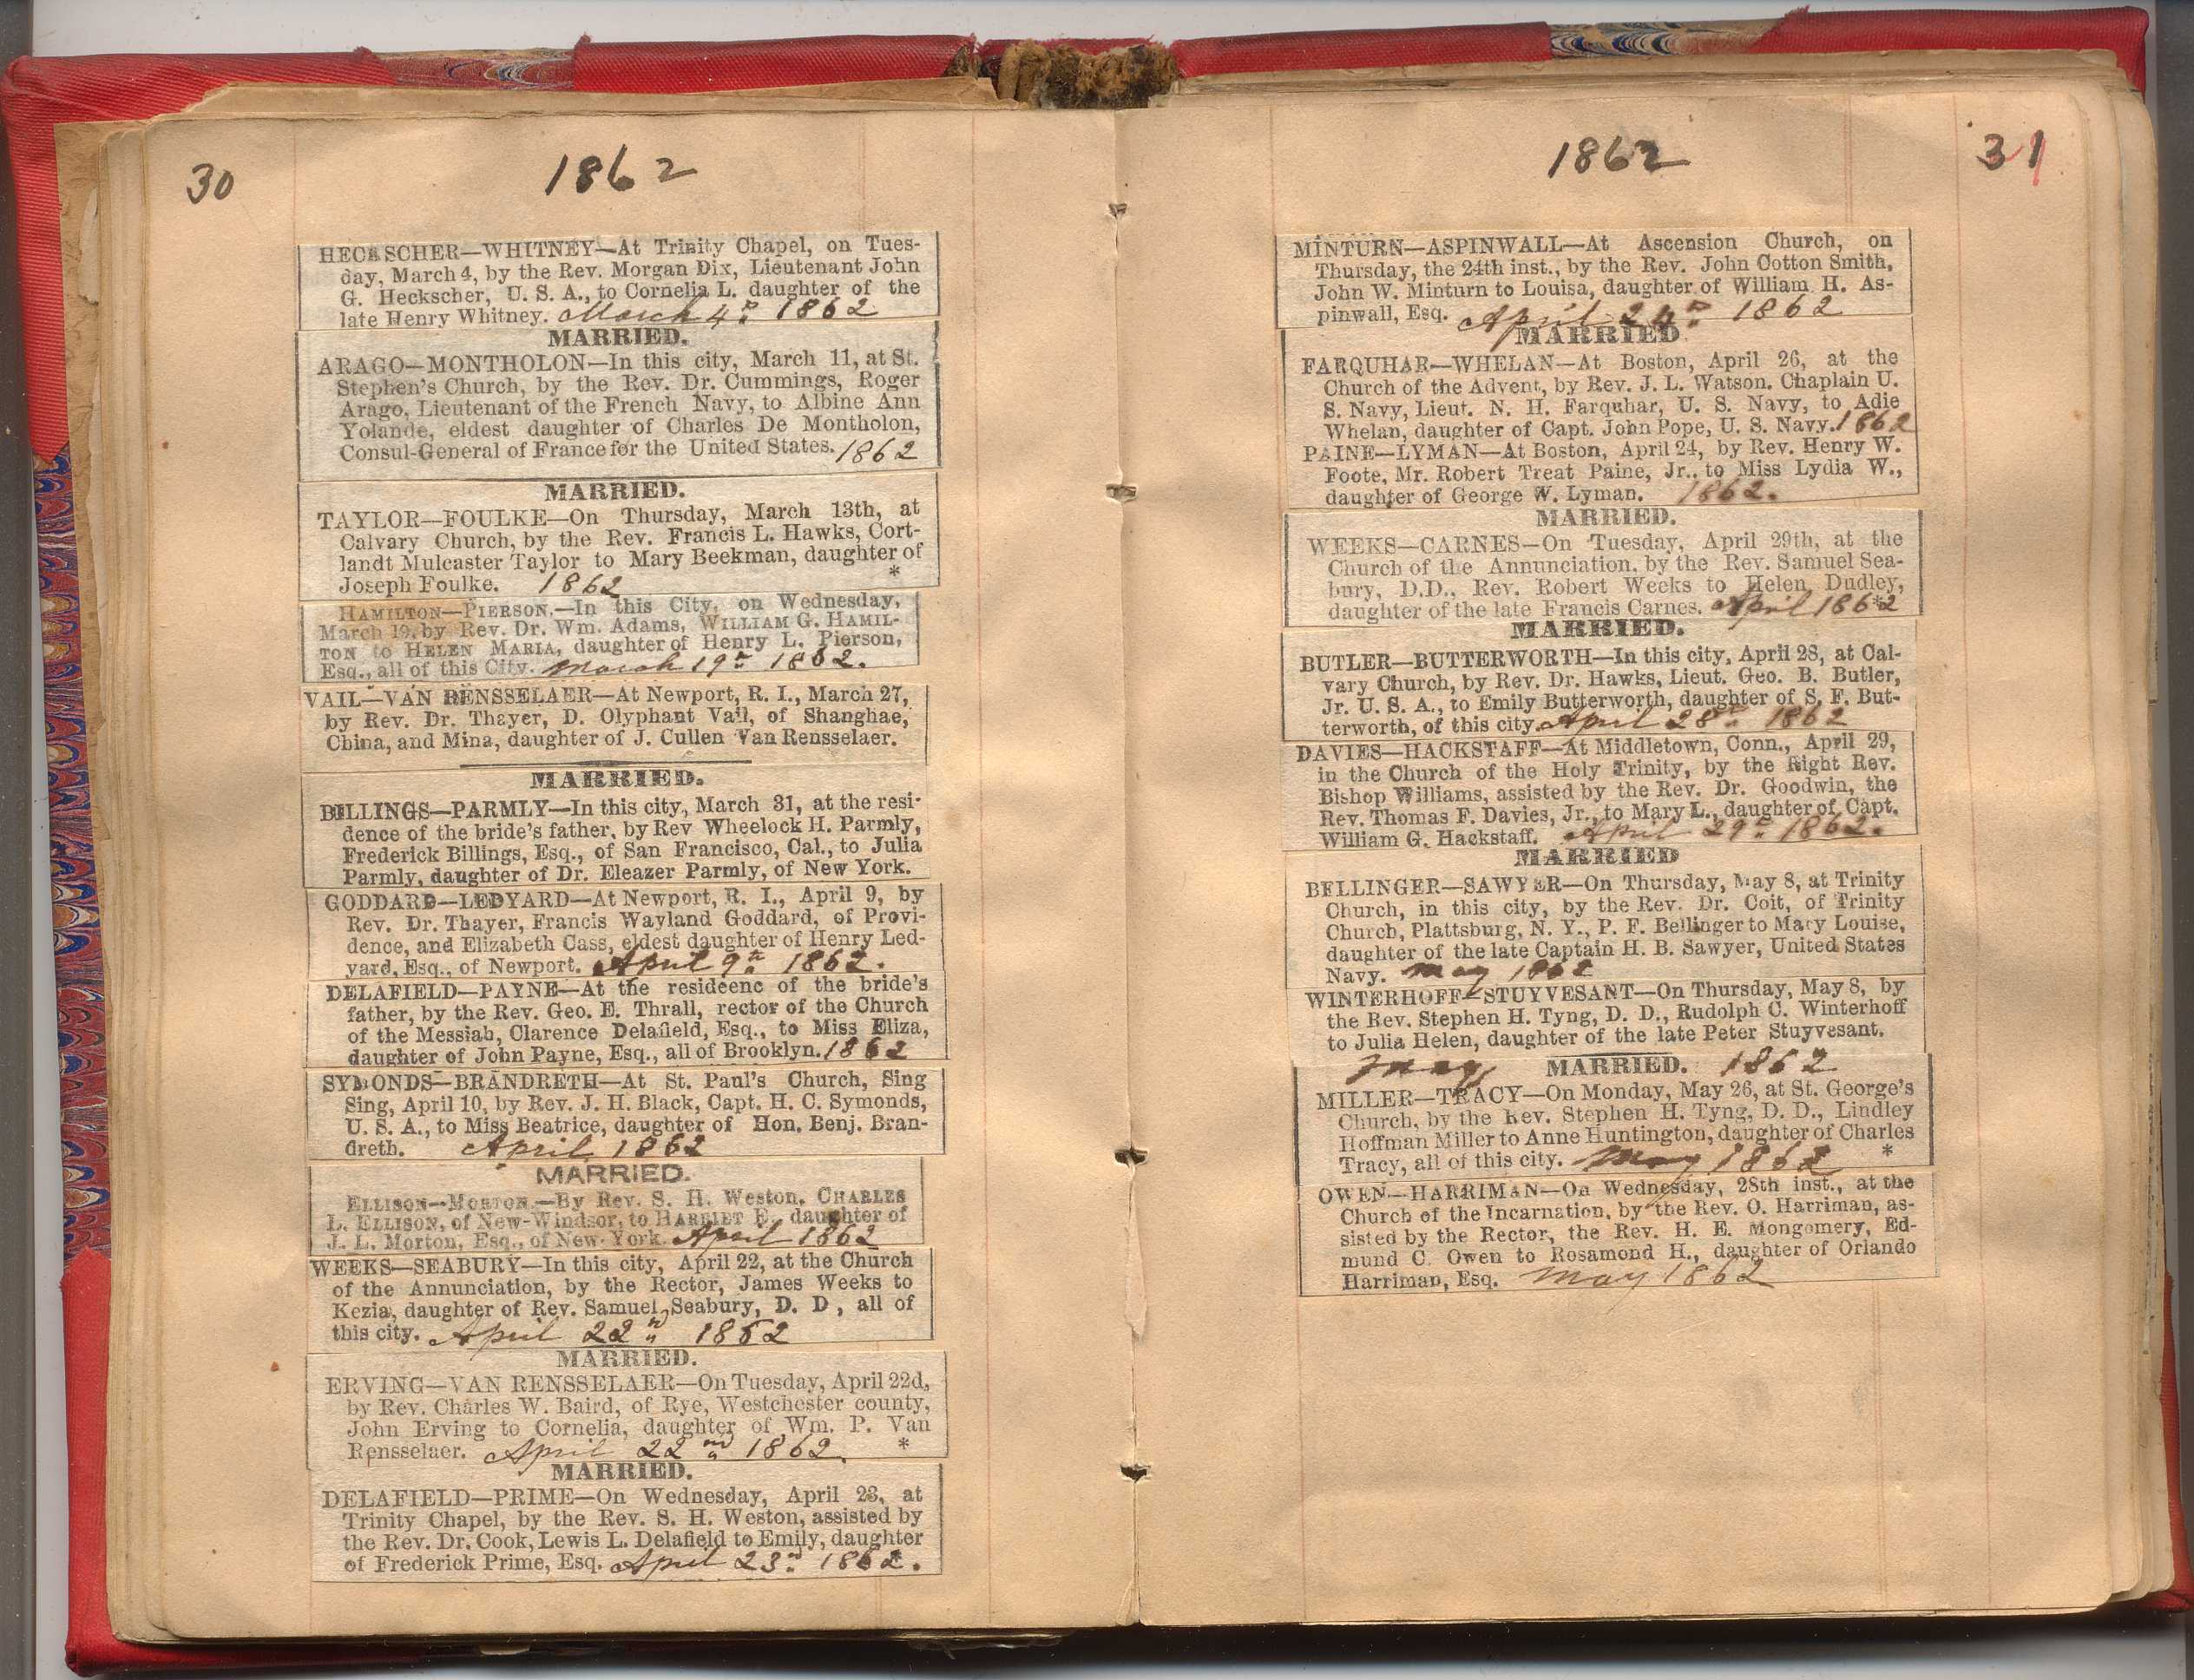 30
1862
HECKSCHER—WHITNEY—At Trinity Chapel, on Tues-
day, March 4, by the Rev. Morgan Dix, Lieutenant John
G. Heckscher, U. S. A., to Cornelia L. daughter of the
late Henry Whitney. March 4th 1862
MARRIED.
ARAGO—MONTHOLON—In this city, March 11, at St.
Stephen's Church, by the Rev. Dr. Cummings, Roger
Arago, Lieutenant of the French Navy, to Albine Ann
Yolande, eldest daughter of Charles De Montholon,
Consul-General of France for the United States. 1862
MARRIED.
TAYLOR—FOULKE—On Thursday, March 13th, at
Calvary Church, by the Rev. Francis L. Hawks, Cort-
landt Mulcaster Taylor to Mary Beekman, daughter of
Joseph Foulke. 1862 *
HAMILTON—PIERSON.—In this City, on Wednesday,
March 19, by Rev. Dr. Wm. Adams, WILLIAM G. HAMIL-
TON to HELEN MARIA, daughter of Henry L. Pierson,
Esq., all of this City. March 19th 1862.
VAIL—VAN RENSSELAER—At Newport, R. I., March 27,
by Rev. Dr. Thayer, D. Olyphant Vail, of Shanghae,
China, and Mina, daughter of J. Cullen Van Rensselaer.
MARRIED.
BILLINGS—PARMLY—In this city, March 31, at the resi-
dence of the bride's father, by Rev Wheelock H. Parmly,
Frederick Billings, Esq., of San Francisco, Cal., to Julia
Parmly, daughter of Dr. Eleazer Parmly, of New York.
GODDARD—LEDYARD—At Newport, R. I., April 9, by
Rev. Dr. Thayer, Francis Wayland Goddard, of Provi-
dence, and Elizabeth Cass, eldest daughter of Henry Led-
yard, Esq., of Newport. April 9th 1862.
DELAFIELD—PAYNE—At the resideenc of the bride's
father, by the Rev. Geo. E. Thrall, rector of the Church
of the Messiah, Clarence Delafield, Esq., to Miss Eliza,
daughter of John Payne, Esq., all of Brooklyn. 1862
SYMONDS—BRANDRETH—At St. Paul's Church, Sing
Sing, April 10, by Rev. J. H. Black, Capt. H. C. Symonds,
U. S. A., to Miss Beatrice, daughter of Hon. Benj. Bran-
dreth. April 1862
MARRIED.
ELLISON—MORTON.—By Rev. S. H. Weston, CHARLES
L. ELLISON, of New-Windsor, to HARRIET E., daughter of
J. L. Morton, Esq., of New-York. April 1862
WEEKS—SEABURY—In this city, April 22, at the Church
of the Annunciation, by the Rector, James Weeks to
Kezia, daughter of Rev. Samuel Seabury, D. D, all of
this city. April 22nd 1862
MARRIED.
ERVING—VAN RENSSELAER—On Tuesday, April 22d,
by Rev. Charles W. Baird, of Rye, Westchester county,
John Erving to Cornelia, daughter of Wm. P. Van
Rensselaer. April 22nd 1862. *
MARRIED.
DELAFIELD—PRIME—On Wednesday, April 23, at
Trinity Chapel, by the Rev. S. H. Weston, assisted by
the Rev. Dr. Cook, Lewis L. Delafield to Emily, daughter
of Frederick Prime, Esq. April 23rd 1862.
1862
31
MINTURN—ASPINWALL—At Ascension Church, on
Thursday, the 24th inst., by the Rev. John Cotton Smith,
John W. Minturn to Louisa, daughter of William H. As-
pinwall, Esq. April 24th 1862
MARRIED
FARQUHAR—WHELAN—At Boston, April 26, at the
Church of the Advent, by Rev. J. L. Watson. Chaplain U.
S. Navy, Lieut. N. H. Farquhar, U. S. Navy, to Adie
Whelan, daughter of Capt. John Pope, U. S. Navy. 1862
PAINE—LYMAN—At Boston, April 24, by Rev. Henry W.
Foote, Mr. Robert Treat Paine, Jr., to Miss Lydia W.,
daughter of George W. Lyman. 1862.
MARRIED.
WEEKS—CARNES—On Tuesday, April 29th, at the
Church of the Annunciation, by the Rev. Samuel Sea-
bury, D.D., Rev. Robert Weeks to Helen Dudley,
daughter of the late Francis Carnes. April 1862 *
MARRIED.
BUTLER—BUTTERWORTH—In this city, April 28, at Cal-
vary Church, by Rev. Dr. Hawks, Lieut. Geo. B. Butler,
Jr. U. S. A., to Emily Butterworth, daughter of S. F. But-
terworth, of this city. April 28th 1862
DAVIES—HACKSTAFF—At Middletown, Conn., April 29,
in the Church of the Holy Trinity, by the Right Rev.
Bishop Williams, assisted by the Rev. Dr. Goodwin, the
Rev. Thomas F. Davies, Jr., to Mary L., daughter of Capt.
William G. Hackstaff. April 29th 1862.
MARRIED
BELLINGER—SAWYER—On Thursday, May 8, at Trinity
Church, in this city, by the Rev. Dr. Coit, of Trinity
Church, Plattsburg, N. Y., P. F. Bellinger to Mary Louise,
daughter of the late Captain H. B. Sawyer, United States
Navy. May 1862
WINTERHOFF—STUYVESANT—On Thursday, May 8, by
the Rev. Stephen H. Tyng, D. D., Rudolph C. Winterhoff
to Julia Helen, daughter of the late Peter Stuyvesant.
May MARRIED. 1862
MILLER—TRACY—On Monday, May 26, at St. George's
Church, by the Rev. Stephen H. Tyng, D. D., Lindley
Hoffman Miller to Anne Huntington, daughter of Charles
Tracy, all of this city. May 1862 *
OWEN—HARRIMAN—On Wednesday, 28th inst., at the
Church of the Incarnation, by the Rev. O. Harriman, as-
sisted by the Rector, the Rev. H. E. Mongomery, Ed-
mund C. Owen to Rosamond H., daughter of Orlando
Harriman, Esq. May 1862